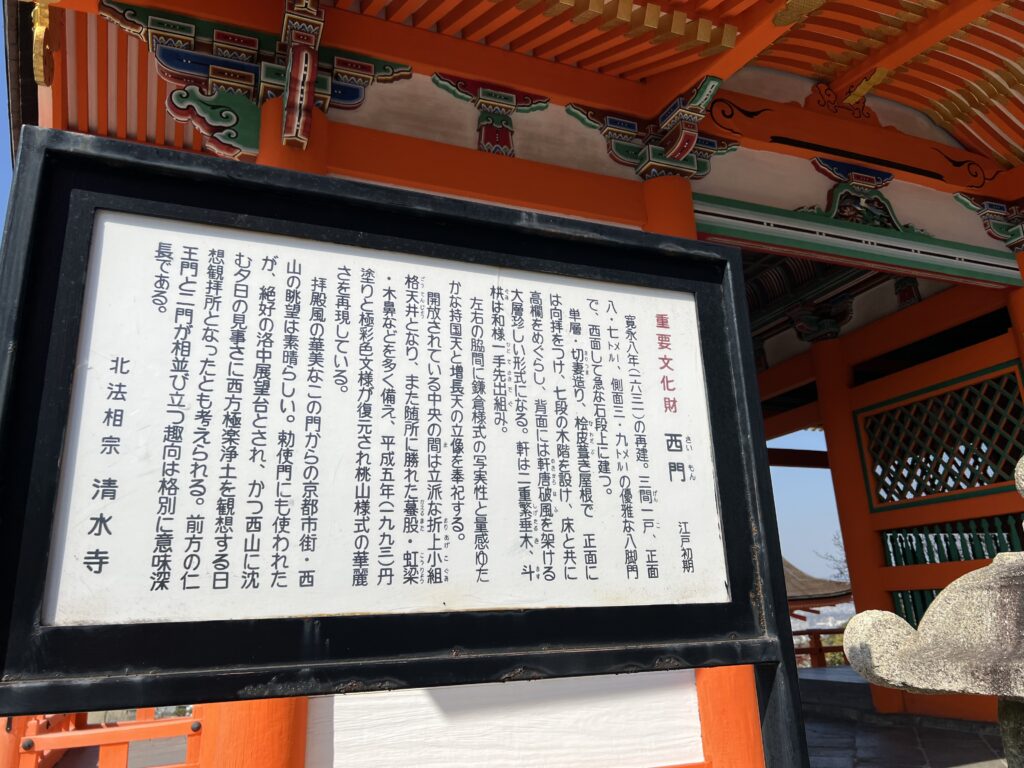 重要文化財 西門 江戸初期
さい もん
寛永八年(一六三一)の再建。三間一戸、正面
八・七メートル、側面三・九メートルの優雅な八脚門
で、西面して急な石段上に建つ。
単層・切妻造り、桧皮葺き屋根で 正面に
は向拝をつけ、七段の木階を設け、床と共に
高欄をめぐらし、背面には軒唐破風を架ける
大層珍しい形式になる。軒は二重繁垂木、斗
栱は和様一手先出組み。
左右の脇間に鎌倉様式の写実性と量感ゆた
かな持国天と増長天の立像を奉祀する。
開放されている中央の間は立派な折上小組
格天井となり、また随所に勝れた蟇股・虹梁
・木鼻などを多く備え、平成五年(一九九三)丹
塗りと極彩色文様が復元され桃山様式の華麗
さを再現している。
拝殿風の華美なこの門からの京都市街・西
山の眺望は素晴らしい。勅使門にも使われた
が、絶好の洛中展望台とされ、かつ西山に沈
む夕日の見事さに西方極楽浄土を観想する日
想観拝所となったとも考えられる。前方の仁
王門と二門が相並び立つ趣向は格別に意味深
長である。
北法相宗 清水寺